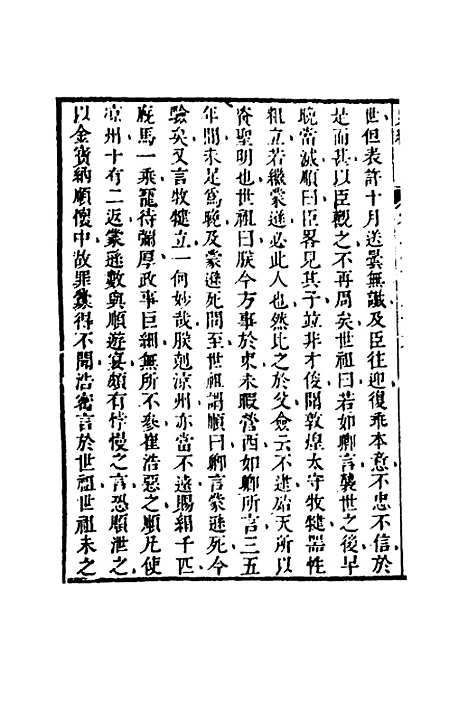 世但表許十月送曇無讖及臣往迎復乖本意不忠不信於
是而甚以臣觀之不再周矣世祖曰若如卿言襲世之後早
晚當滅順曰臣略見其子並非才俊聞敦煌太守牧犍器性
粗立若繼蒙遜必此人也然比之於父僉云不逮殆天所以
資聖明也世祖曰朕今方事於東未暇營西如卿所言三五
年間未足為晚及蒙遜死問至世祖謂順曰卿言蒙遜死今
驗矣又言牧犍立一何妙哉朕剋涼州亦當不遠賜絹千匹
廄馬一乘寵待彌厚政事巨細無所不參崔浩惡之順凡使
涼州十有二返蒙遜數與順遊宴頗有悖慢之言恐順泄之
以金寶納順懷中故罪釁得不聞浩密言於世祖世祖未之